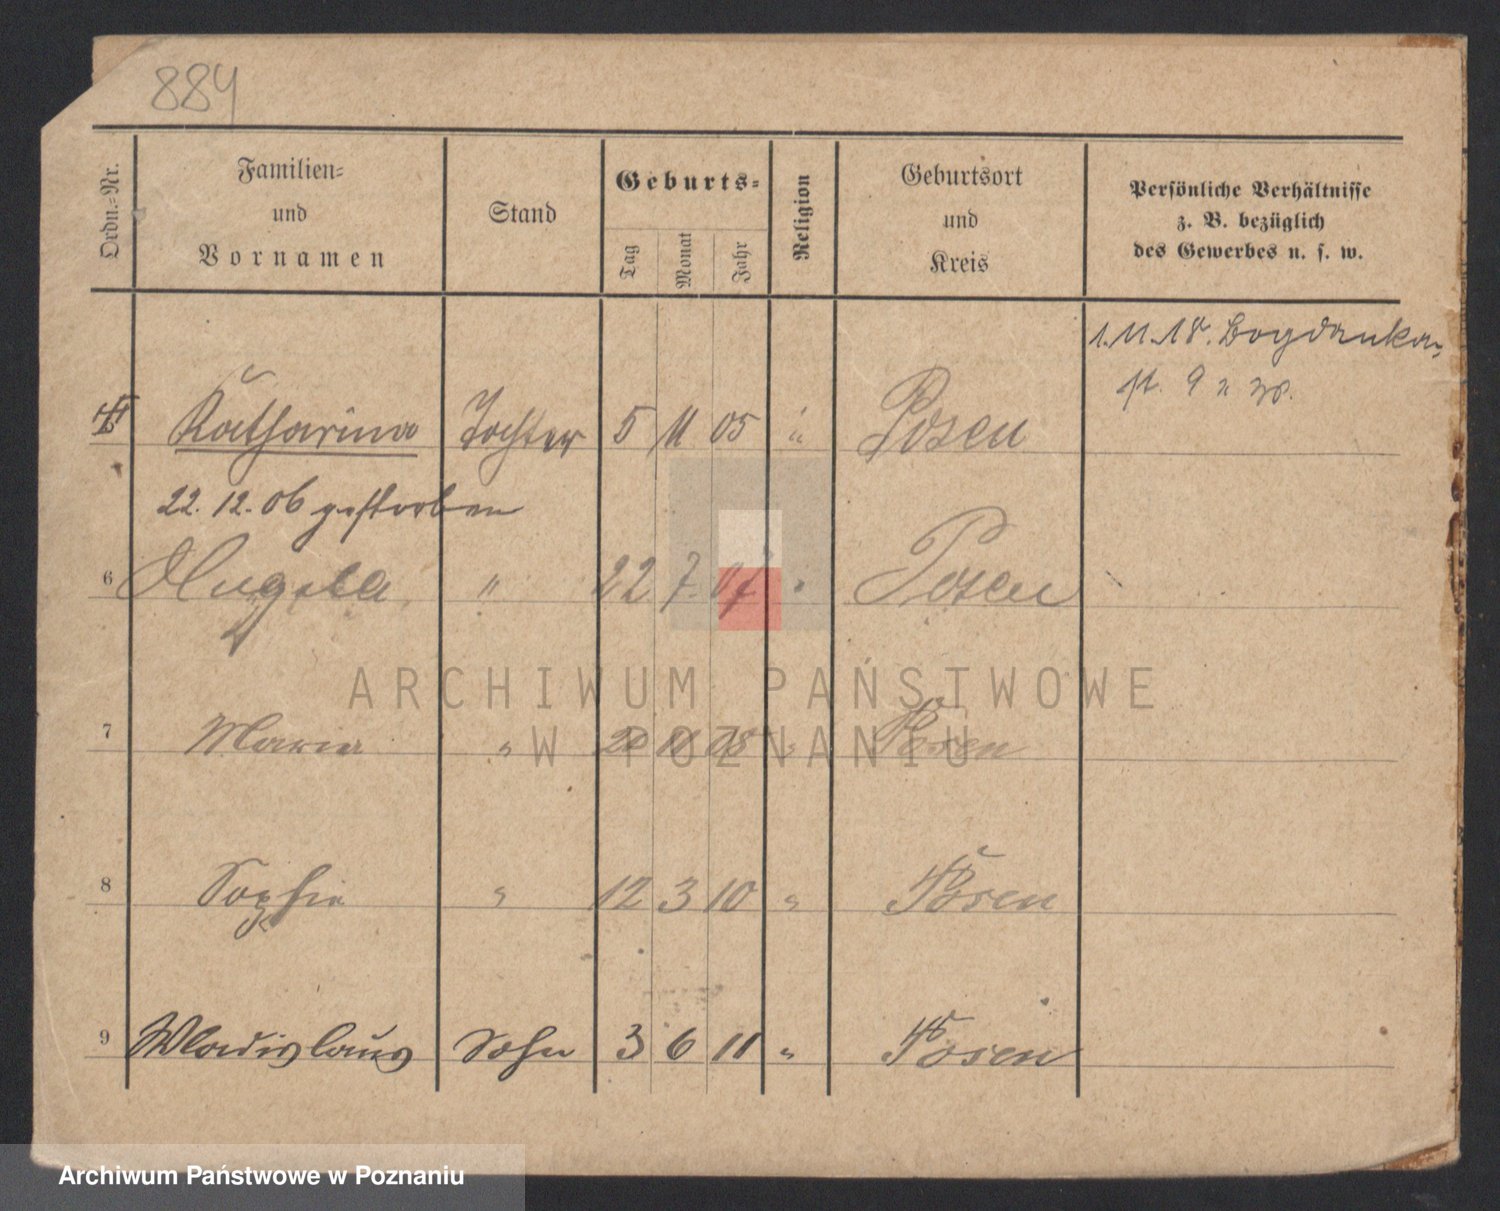 884
Ordn.-Nr.
Familien-
und
Vornamen
Stand
Geburts-
Tag
Monat
Jahr
Religion
Geburtsort
und
Kreis
Persönliche Verhältnisse
z. B. bezüglich
des Gewerbes u. s. w.
1. 11. 18. Bogdanka
Katharina Tochter 5 11 05 " Posen
22. 12. 06 gestorben
6 " 22 7 07 Posen
7 Maria " 20 11 08 " Posen
8 Sophie " 12 3 10 " Posen
9 Wladislaus Sohn 3 6 11 " Posen
ARCHIWUM PAŃSTWOWE
W POZNANIU
Archiwum Państwowe w Poznaniu